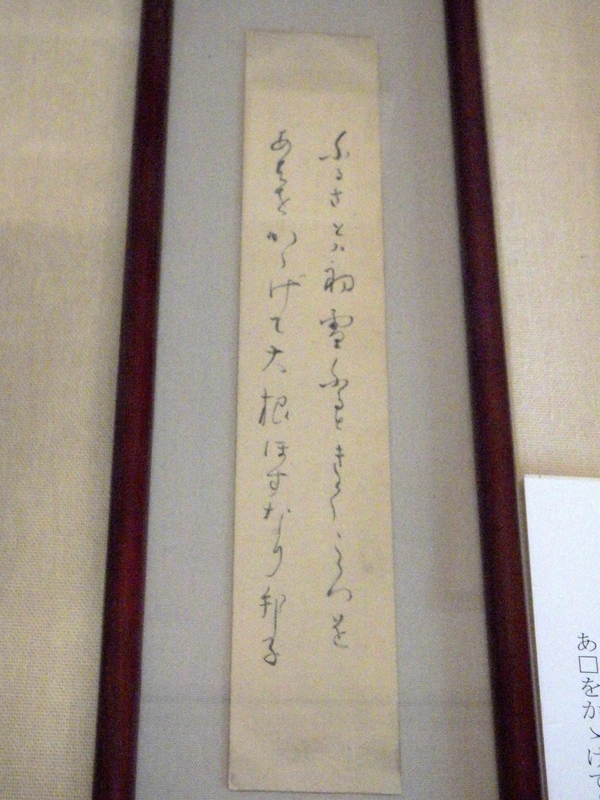 ふるさとハ初雪ふるときくころを
あをかゝげて大根ほすなり 邦子
あ□をかゝげて